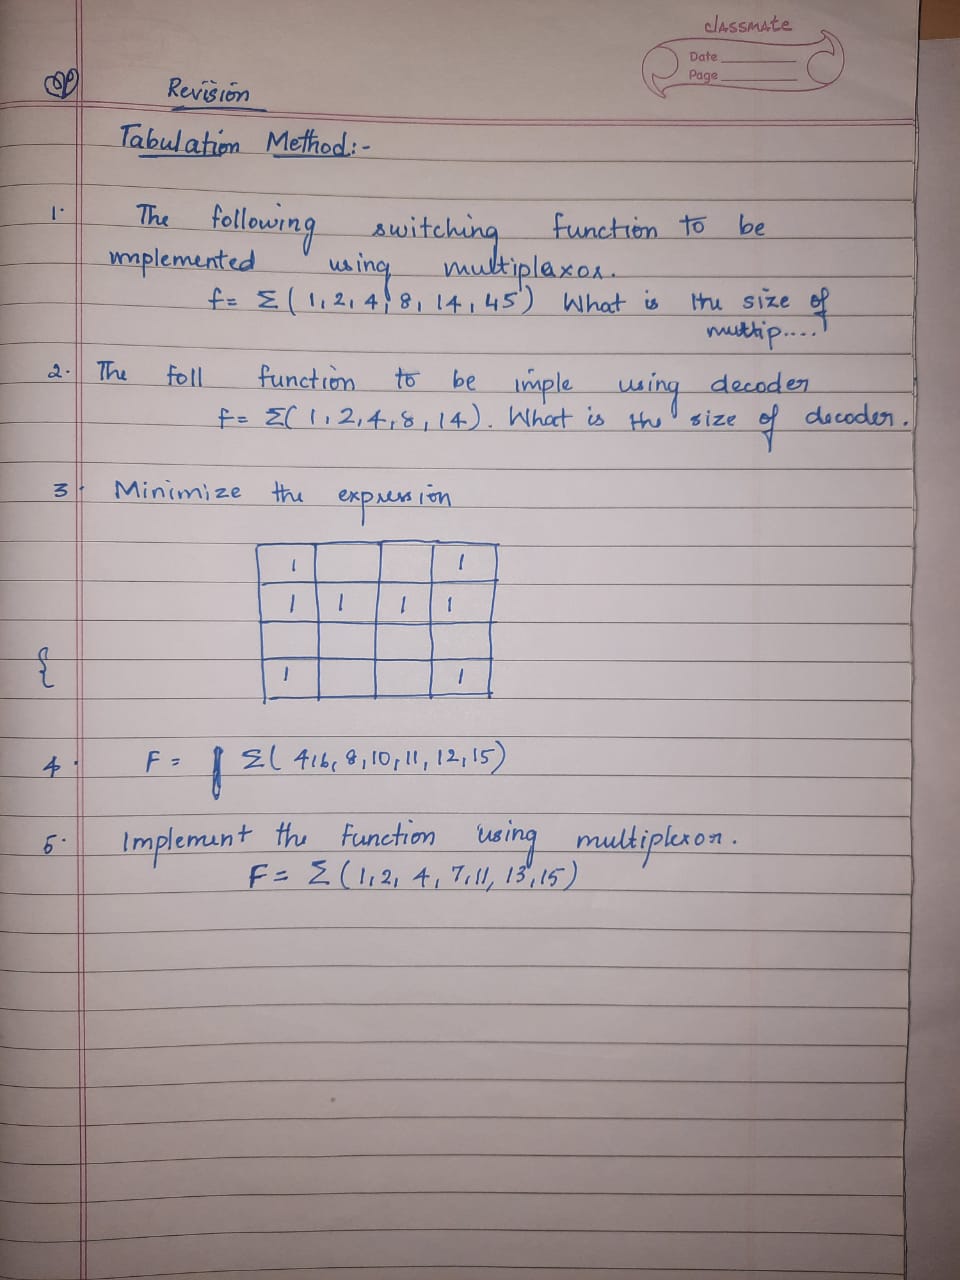 classmate
Date
Page
Revision
Tabulation Method:-
1. The following switching function to be
implemented using multiplexor.
f = Σ(1, 2, 4, 8, 14, 45) What is the size of
multip....
2. The foll function to be imple using decoder
f = Σ(1, 2, 4, 8, 14). What is the size of decoder.
3. Minimize the expression
1 1
1 1 1 1
1 1
4. F = Σ( 4, 6, 8, 10, 11, 12, 15)
5. Implement the function using multiplexor.
F = Σ (1, 2, 4, 7, 11, 13, 15)